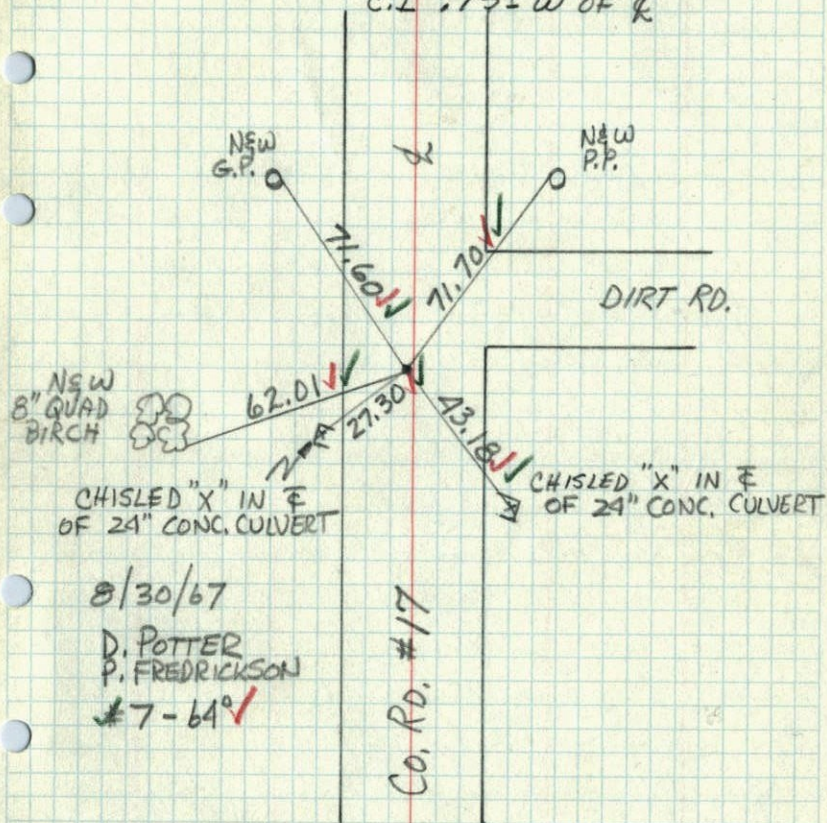 .75± W OF ℄
N&W
G.P.
N&W
P.P.
71.60
71.70
DIRT RD.
N&W
8" QUAD
BIRCH
62.01
27.30
43.18
CHISLED "X" IN ℄
OF 24" CONC. CULVERT
CHISLED "X" IN ℄
OF 24" CONC. CULVERT
8/30/67
D. POTTER
P. FREDRICKSON
#7 - 64°
CO. RD. #17